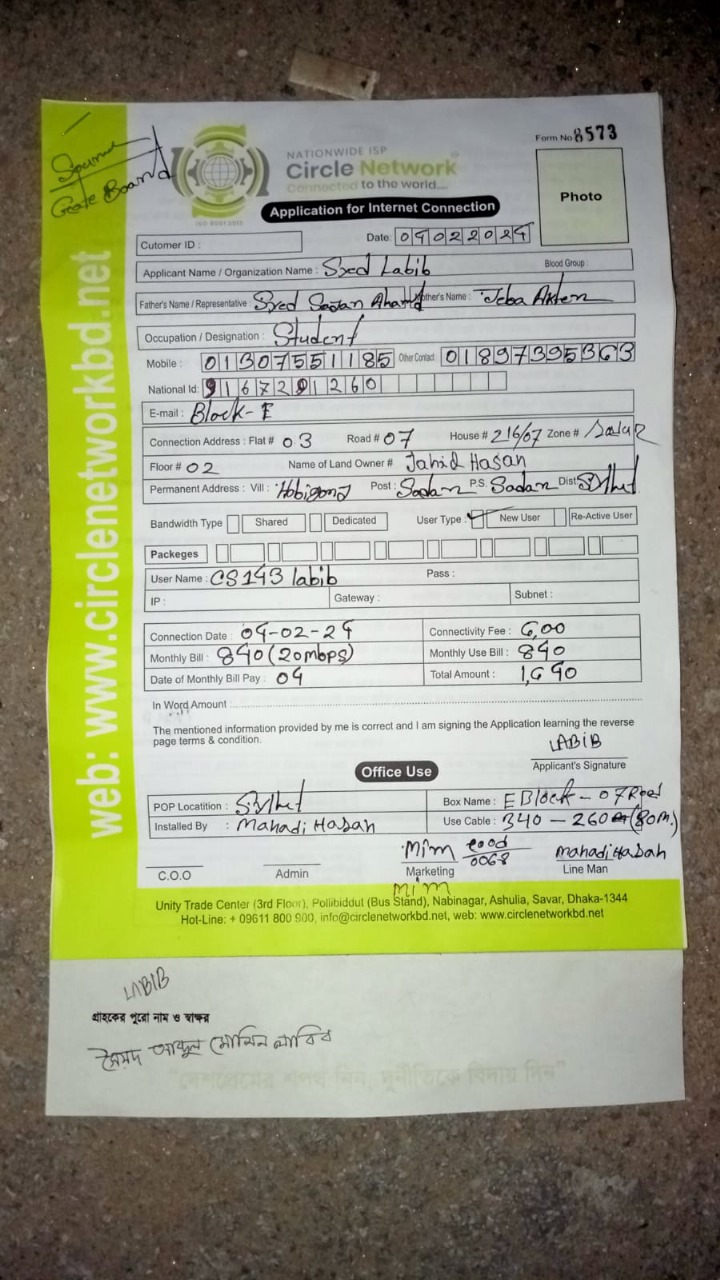 Gate Board
NATIONWIDE ISP
Circle Network
Connected to the world....
ISO 9001:2015
Form No 8573
Photo
Application for Internet Connection
Cutomer ID : Date: 04022024
Applicant Name / Organization Name : Syed Labib Blood Group :
Father's Name / Representative : Syed Sadan Ahamd Mother's Name : Jeba Akter
Occupation / Designation : Student
Mobile : 01307551185 Other Contact 01897395363
National Id: 9167291260
E-mail : Block-E
Connection Address : Flat # 03 Road # 07 House # 216/07 Zone # Sadar
Floor # 02 Name of Land Owner # Jahid Hasan
Permanent Address : Vill : Hobigonj Post : Sadar P.S. Sadar Dist Sylhet
Bandwidth Type Shared Dedicated User Type : ✓ New User Re-Active User
Packeges
User Name : CS143 labib Pass :
IP : Gateway : Subnet :
Connection Date : 04-02-24 Connectivity Fee : 6,00
Monthly Bill : 840 (20mbps) Monthly Use Bill : 840
Date of Monthly Bill Pay : 04 Total Amount : 1,440
In Word Amount
The mentioned information provided by me is correct and I am signing the Application learning the reverse
page terms & condition.
LABIB
Applicant's Signature
Office Use
POP Locatition : Sylhet Box Name : E Block - 07 Road
Installed By : Mahadi Hasan Use Cable : 340 - 260 (80m.)
Mim 0068 mahadi Hasan
C.O.O Admin Marketing Line Man
Mim
Unity Trade Center (3rd Floor), Pollibiddut (Bus Stand), Nabinagar, Ashulia, Savar, Dhaka-1344
Hot-Line: + 09611 800 900, info@circlenetworkbd.net, web: www.circlenetworkbd.net
web: www.circlenetworkbd.net
LABIB
গ্রাহকের পুরো নাম ও স্বাক্ষর
সৈয়দ আব্দুল মোমিন লাবিব
"দেশপ্রেমের শপথ নিন, দুর্নীতিকে বিদায় দিন"